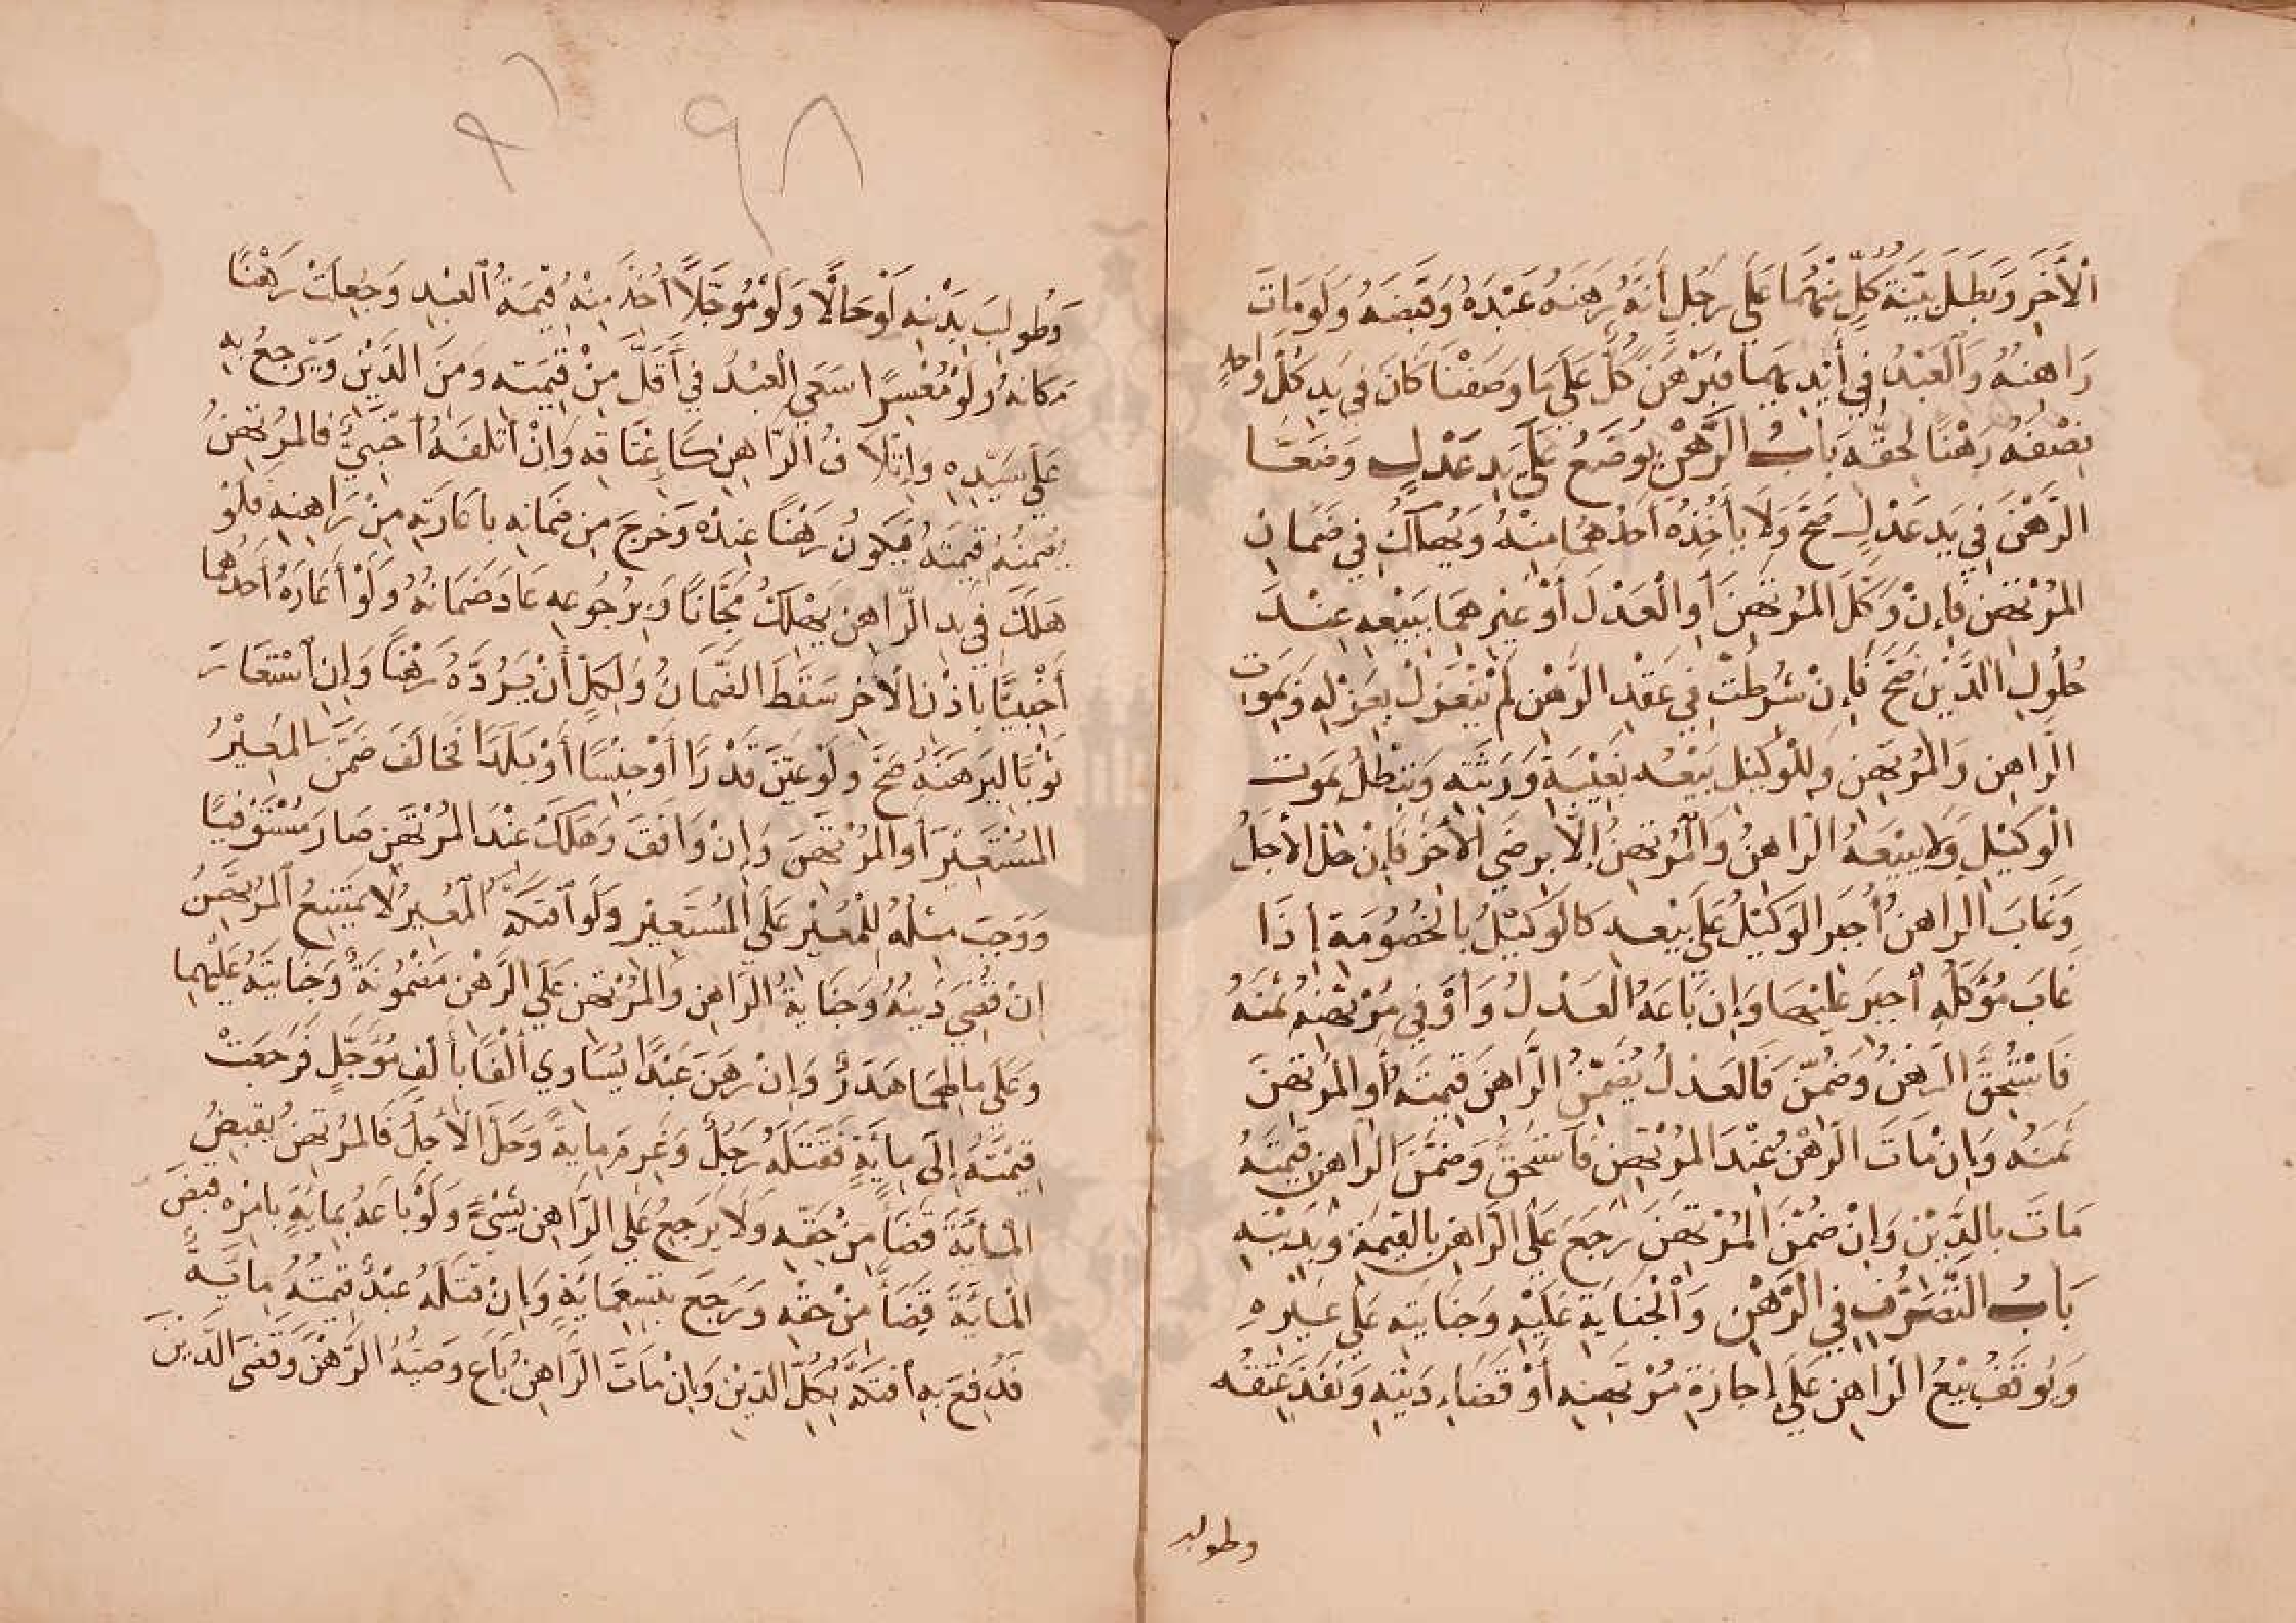 الْآخَرِ وَبَطَلَ بَيِّنَةُ كُلٍّ مِنْهُمَا عَلَى رَجُلٍ أَنَّهُ رَهَنَهُ عَبْدَهُ وَقَبَضَهُ وَلَو مَاتَ
رَاهِنُهُ وَالْعَبْدُ فِي أَيْدِيهِمَا فَبَرْهَنَ كُلٌّ عَلَى مَا وَصَفْنَا كَانَ فِي يَدِ كُلِّ وَاحِدٍ
نِصْفُهُ رَهْنًا لِحَقِّهِ بَابُ الرَّهْنِ يُوضَعُ عَلَى يَدِ عَدْلٍ وَضَعَا
الرَّهْنَ فِي يَدِ عَدْلٍ صَحَّ وَلَا يَأْخُذُهُ أَحَدُهُمَا مِنْهُ وَيَهْلَكُ فِي ضَمَانِ
المُرْتَهِنِ فَإِنْ وَكَّلَ المُرْتَهِنَ أَوِ الْعَدْلَ أَوْ غَيْرَهُمَا بِبَيْعِهِ عِنْدَ
حُلُولِ الدَّيْنِ صَحَّ فَإِنْ شُرِطَتْ فِي عَقْدِ الرَّهْنِ لَمْ يَنْعَزِلْ بِعَزْلِهِ وَبِمَوْتِ
الرَّاهِنِ وَالمُرْتَهِنِ وَلِلْوَكِيلِ بَيْعُهُ بِغَيْبَةِ وَرَثَتِهِ وَتَبْطُلُ بِمَوْتِ
الْوَكِيْلِ وَلَا يَبِيْعَهُ الرَّاهِنُ وَالْمُرْتَهِنُ إِلَّا بِرِضَى الْآخَرِ فَإِنْ حَلَّ الْأَجَلُ
وَغَابَ الرَّاهِنُ أُجْبِرَ الوَكِيْلُ عَلَى بَيْعِهِ كَالوَكِيْلِ بِالخُصُومَةِ إِذَا
غَابَ مُوَكِّلُهُ أُجْبِرَ عَلَيْهَا وَإِنْ بَاعَهُ الْعَدْلُ وَأَوْفَى مُرْتَهِنَهُ ثَمَنَهُ
فَاسْتُحِقَّ الرَّهْنُ وَضَمِنَ فَالعَدْلُ يُضَمِّنُ الرَّاهِنَ قِيمَتَهُ أَوِ المُرْتَهِنَ
ثَمَنَهُ وَإِنْ مَاتَ الرَّهْنُ عِنْدَ المُرْتَهِنِ فَاسْتُحِقَّ وَضَمِنَ الرَّاهِنُ قِيمَتَهُ
مَاتَ بِالدَّيْنِ وَإِنْ ضُمِّنَ المُرْتَهِنَ رَجَعَ عَلَى الرَّاهِنِ بِالقِيمَةِ وَبِدَيْنِهِ
بَابُ التَّصَرُّفِ فِي الرَّهْنِ وَالْجِنَايَةِ عَلَيْهِ وَجِنَايَتِهِ عَلَى غَيْرِهِ
وَيُوقَفُ بَيْعُ الرَّاهِنِ عَلَى إِجَازَةِ مُرْتَهِنِهِ أَوْ قَضَاءِ دَيْنِهِ وَنَفَذَ عِتْقُهُ
وطولب
٩٨
وَطُولِبَ بِدَيْنِهِ لَوْ حَالًّا وَلَوْ مُؤَجَّلًا أُخِذَ مِنْهُ قِيْمَةُ الْعَبْدِ وَجُعِلَتْ رَهْنًا
مَكَانَهُ وَلَوْ مُعْسِرًا سَعَى الْعَبْدُ فِي أَقَلَّ مِنْ قِيمَتِهِ وَمِنَ الدَّيْنِ وَيَرْجِعُ بِهِ
عَلَى سَيِّدِهِ وَإِتْلَافُ الرَّاهِنِ كَإِعْتَاقِهِ وَإِنْ أَتْلَفَهُ أَجْنَبِيٌّ فَالمُرْتَهِنُ
يُضَمِّنُهُ قِيمَتَهُ فَيَكُونُ رَهْنًا عِنْدَهُ وَخَرَجَ مِنْ ضَمَانِهِ بِإِعَارَتِهِ مِنْ رَاهِنِهِ فَلَوْ
هَلَكَ فِي يَدِ الرَّاهِنِ يَهْلَكُ مَجَّانًا وَبِرُجُوعِهِ عَادَ ضَمَانُهُ وَلَوْ أَعَارَهُ أَحَدُهُمَا
أَجْنَبِيًّا بِإِذْنِ الْآخَرِ سَقَطَ الضَّمَانُ وَلِكُلٍّ أَنْ يَرُدَّهُ رَهْنًا وَإِنِ اسْتَعَارَ
ثَوْبًا لِيَرْهَنَهُ صَحَّ وَلَوْ عَيَّنَ قَدْرًا أَوْ جِنْسًا أَوْ بَلَدًا فَخَالَفَ ضَمَّنَ المُعِيْرُ
المُسْتَعِيْرَ أَوِ المُرْتَهِنَ وَإِنْ وَافَقَ وَهَلَكَ عِنْدَ المُرْتَهِنِ صَارَ مُسْتَوْفِيًا
وَوَجَبَ مِثْلُهُ لِلْمُعِيْرِ عَلَى المُسْتَعِيْرِ وَلَوِ افْتَكَّهُ الْمُعِيْرُ لَا يَمْتَنِعُ المُرْتَهِنُ
إِنْ قَضَى دَيْنَهُ وَجِنَايَةُ الرَّاهِنِ وَالمُرْتَهِنِ عَلَى الرَّهْنِ مَضْمُونَةٌ وَجِنَايَتُهُ عَلَيْهِمَا
وَعَلَى مَالِهِمَا هَدَرٌ وَإِنْ رَهَنَ عَبْدًا يُسَاوِي أَلْفًا بِأَلْفٍ مُؤَجَّلٍ فَرَجَعَتْ
قِيْمَتُهُ إِلَى مِائَةٍ فَقَتَلَهُ رَجُلٌ وَغَرِمَ مِايَةً وَحَلَّ الْأَجَلُ فَالمُرْتَهِنُ يَقْبِضُ
الْمِائَةَ قَضَاءً مِنْ حَقِّهِ وَلَا يَرْجِعُ عَلَى الرَّاهِنِ بِشَيْءٍ وَلَوْ بَاعَهُ بِمِائَةٍ بِأَمْرِهِ قَبَضَ
الْمِائَةَ قَضَاءً مِنْ حَقِّهِ وَرَجَعَ بِتِسْعِمِائَةٍ وَإِنْ قَتَلَهُ عَبْدٌ قِيْمَتُهُ مِائَةٌ
فَدُفِعَ بِهِ افْتَكَّهُ بِكُلِّ الدَّيْنِ وَإِنْ مَاتَ الرَّاهِنُ بَاعَ وَصِيُّهُ الرَّهْنَ وَقَضَى الدَّيْنَ